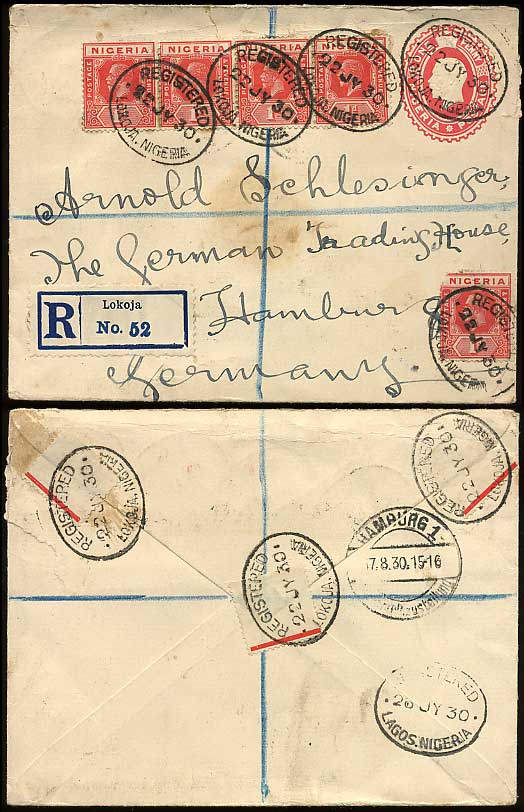 NIGERIA NIGERIA NIGERIA NIGERIA
POSTAGE
REGISTERED
22 JY 30
LOKOJA. NIGERIA
REGISTERED
22 JY 30
LOKOJA. NIGERIA
REGISTERED
22 JY 30
LOKOJA. NIGERIA
REGISTERED
22 JY 30
LOKOJA. NIGERIA
Arnold Schlesinger,
The German Trading House,
Hamburg
Germany.
R
Lokoja
No. 52
NIGERIA
REGISTERED
22 JY 30
LOKOJA. NIGERIA
REGISTERED
22 JY 30
LOKOJA. NIGERIA
REGISTERED
22 JY 30
LOKOJA. NIGERIA
REGISTERED
22 JY 30
LOKOJA. NIGERIA
HAMBURG 1
17.8.30.15-16
REGISTERED
26 JY 30
LAGOS. NIGERIA